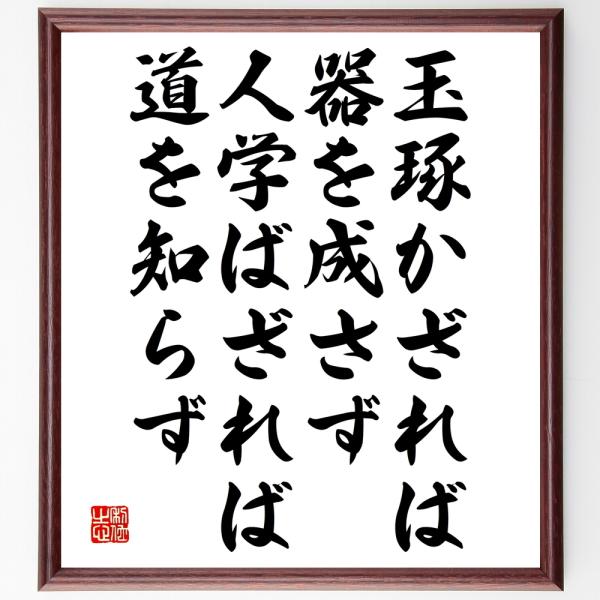 玉琢かざれば
器を成さず
人学ばざれば
道を知らず